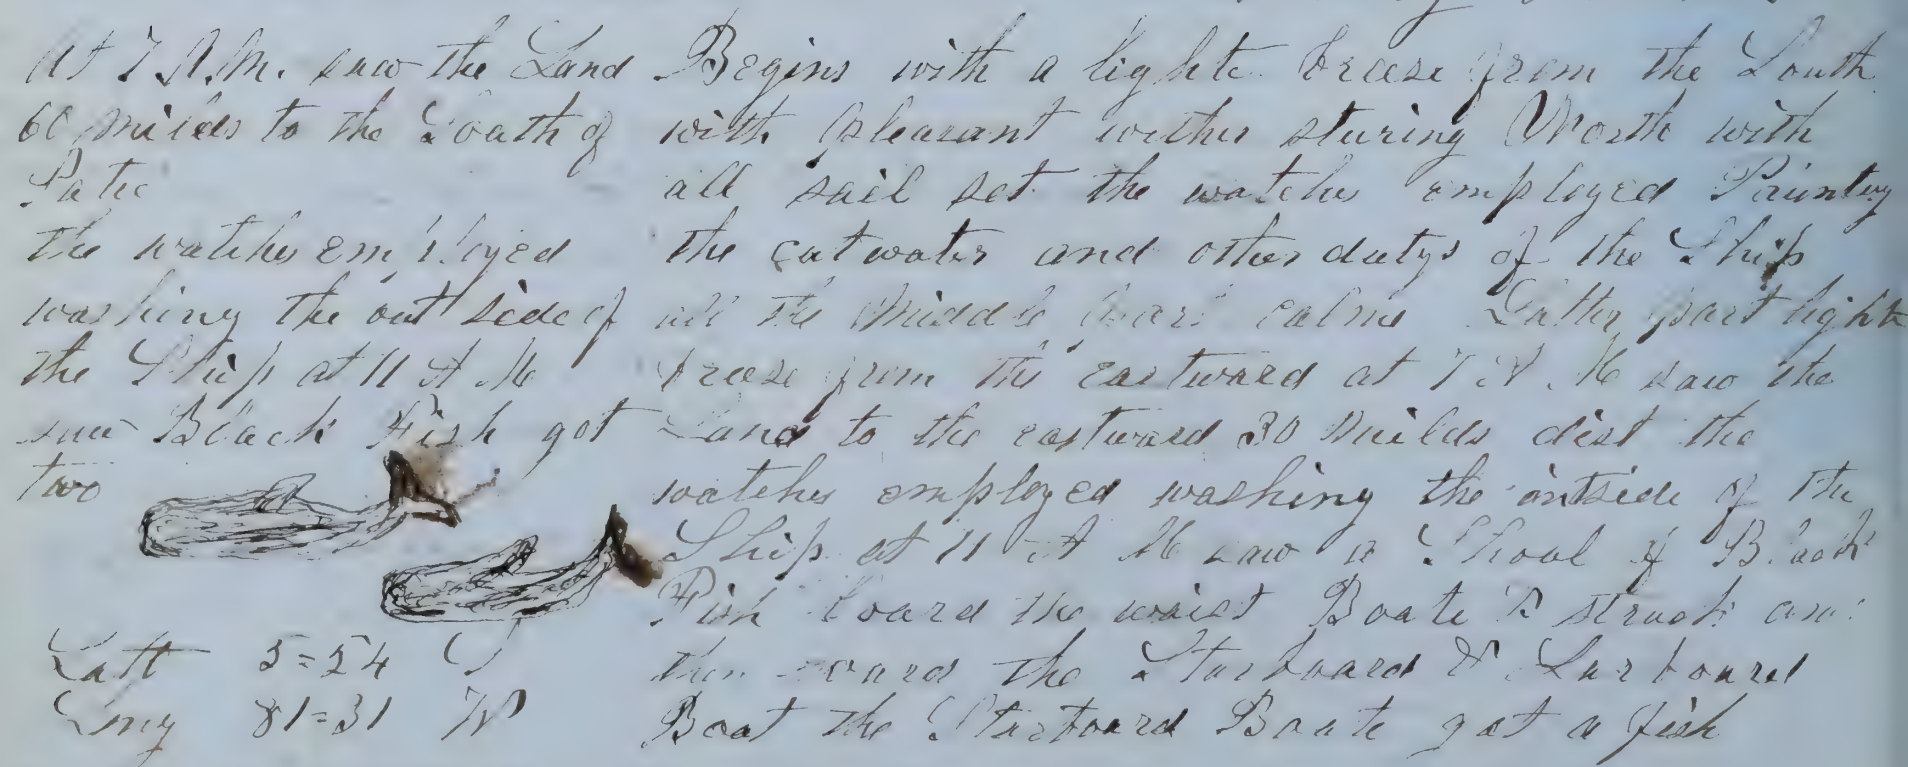 At 7 A.M. saw the Land
60 milds to the South of
Pate
the watches employed
washing the out side of
the Ship at 11 A M
saw Black Fish got
two
Latt 5=54 S
Long 81=31 W
Begins with a light breeze from the South
with pleasant wether sturing North with
all sail set the watches employed Painting
the cutwater and other dutys of the Ship
all the Middle part calme Latter part light
breeze from the eastward at 7 A M saw the
Land to the eastward 30 milds dist the
watches employed washing the outside of the
Ship at 11 A M saw a Shoal of Black
Fish loard the waist Boate & struck and
then loard the Starboard & Larboard
Boat the Starboard Boate got a fish